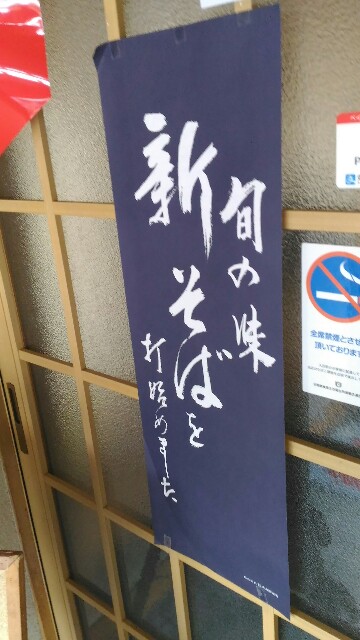 旬の味
新そばを
打始めました
全席禁煙とさせ
頂いております